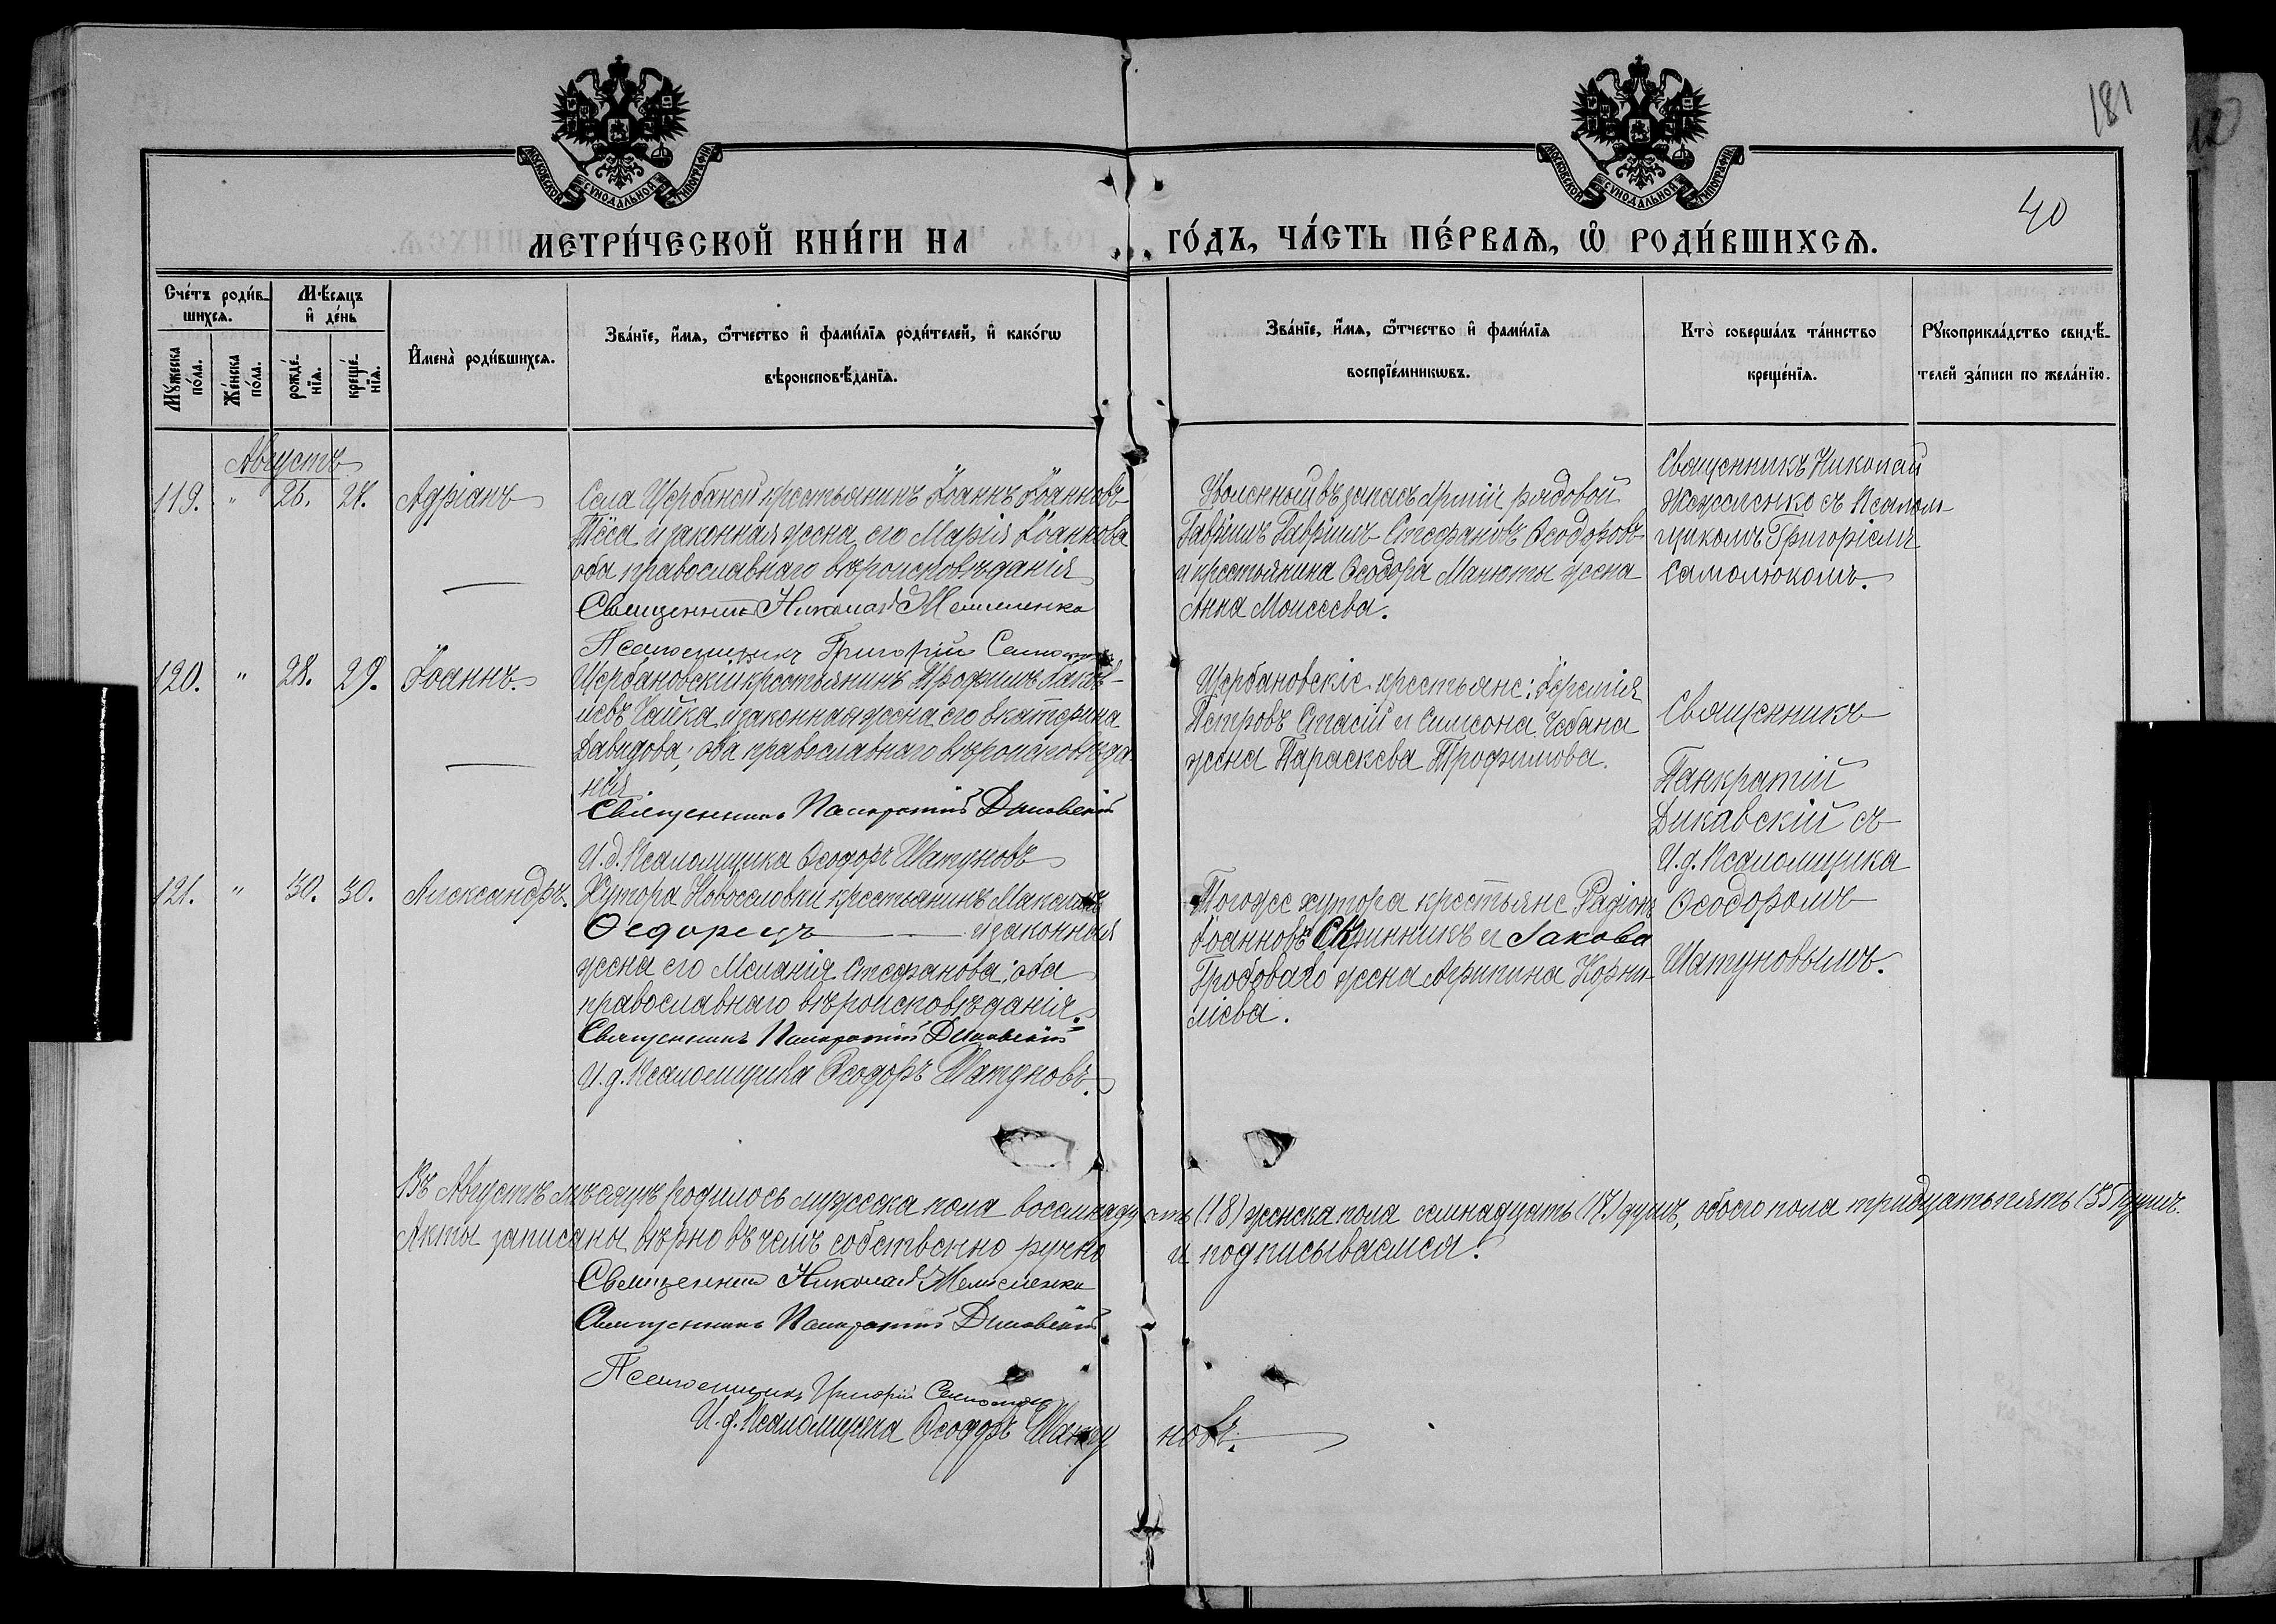 181
40
МОСКОВСКОЙ СѴНОДАЛЬНОЙ ТИПОГРАФІИ
МОСКОВСКОЙ СѴНОДАЛЬНОЙ ТИПОГРАФІИ
МЕТРИ́ЧЕСКОЙ КНИ́ГИ НА ГО́ДЪ, ЧА́СТЬ ПЕ́РВАѦ, Ѡ҆ РОДИ́ВШИХСѦ.
Сче́тъ роди́в-
шихсѧ.
Мѣ́сѧцъ
и҆ де́нь
Мꙋ́жеска
по́ла.
Же́нска
по́ла.
рожде́-
нїѧ.
креще́-
нїѧ.
И҆мена̀ роди́вшихсѧ.
Зва́нїе, и҆́мѧ, ѻ҆́тчество и҆ фами́лїѧ роди́телей, и҆ како́гѡ
вѣроисповѣ́данїѧ.
Зва́нїе, и҆́мѧ, ѻ҆́тчество и҆ фами́лїѧ
воспрїе́мникѡвъ.
Кто̀ соверша́лъ та́инство
креще́нїѧ.
Рꙋкоприкла́дство свидѣ́-
телей за́писи по жела́нїю.
Августъ
119. " 26. 27. Адріанъ
Села Щербаней крестьянинъ Іоаннъ Іоанновъ
Тёса и законная жена его Марія Іоаннова
оба православнаго вѣроисповѣданія
Священникъ Николай
Псаломщикъ Григорій
Уволенный въ запасъ Арміи рядовой
Гавріилъ Гавріилъ Стефановъ Ѳеодоровъ
и крестьянина Ѳеодора Манюты жена
Анна Моисеева.
Священникъ Николай
съ Псалом-
щикомъ Григоріемъ
Самолюкомъ.
120. " 28. 29. Іоаннъ.
Щербановскій крестьянинъ Трофимъ Іаков-
левъ Чайка и законная жена его Екатерина
Давидова; оба православнаго вѣроисповѣда-
нія
Священникъ Панкратій Дикавскій
И. д. Псаломщика Ѳеодоръ Шатуновъ
Щербановскіе крестьяне: Іеремія
Петровъ Стасій и Симеона Чебана
жена Параскева Трофимова.
Священникъ
Панкратій
Дикавскій съ
И. д. Псаломщика
Ѳеодоромъ
Шатуновымъ.
121. " 30. 30. Александръ.
Хутора Новоселовки крестьянинъ
Ѳедорецъ и законная
жена его Меланія Стефанова; оба
православнаго вѣроисповѣданія.
Священникъ Панкратій Дикавскій
И. д. Псаломщика Ѳеодоръ Шатуновъ.
Того же хутора крестьяне Радіонъ
Іоанновъ Скринникъ и Іакова
Гробоваго жена Агрипина Корни-
ліева.
Въ Августѣ мѣсяцѣ родилось мужеска пола восемнадцать (18) женска пола семнадцать (17) душъ, обоего пола тридцать пять (35) душъ.
Акты записаны вѣрно въ чемъ собственно ручно и подписываемся.
Священникъ Николай
Священникъ Панкратій Дикавскій
Псаломщикъ Григорій
И. д. Псаломщика Ѳеодоръ Шатуновъ.